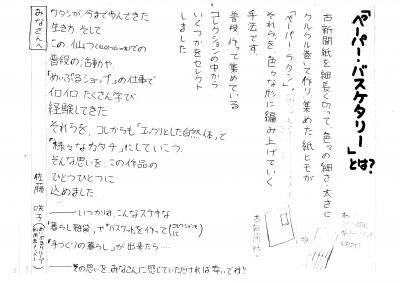 「ペーパー・バスケタリー」とは？
古新聞紙を細長く切って、色々の細さ、太さに
クルクル巻いて作り、集めた紙ヒモが
「ペーパー・ラタン」。
それらを色々な形に編み上げていく
手法です。
普段、作って集めている
コレクションの中から
いくつかをセレクト
しました
古新聞紙
みなさんへ
ワタシが、今まで歩んできた
生き方、そして
この、仙つ での
普段の活動や、
「めいぷるショップ」の仕事で
イロイロ、たくさん学び
経験してきた
それらを、コレからも「エックリとした自然体」で
「様々なカタチ」にしていこう。
そんな思いを、この作品の
ひとつひとつに
込めました。
佐藤 咲子
――いつかは、こんなステキな
「暮らし雑貨」や「バスケットを作って（コレクションをして）
「手づくりの暮らし」が出来たら‥‥
――その思いを、みなさんに感じていただければ幸いです!!